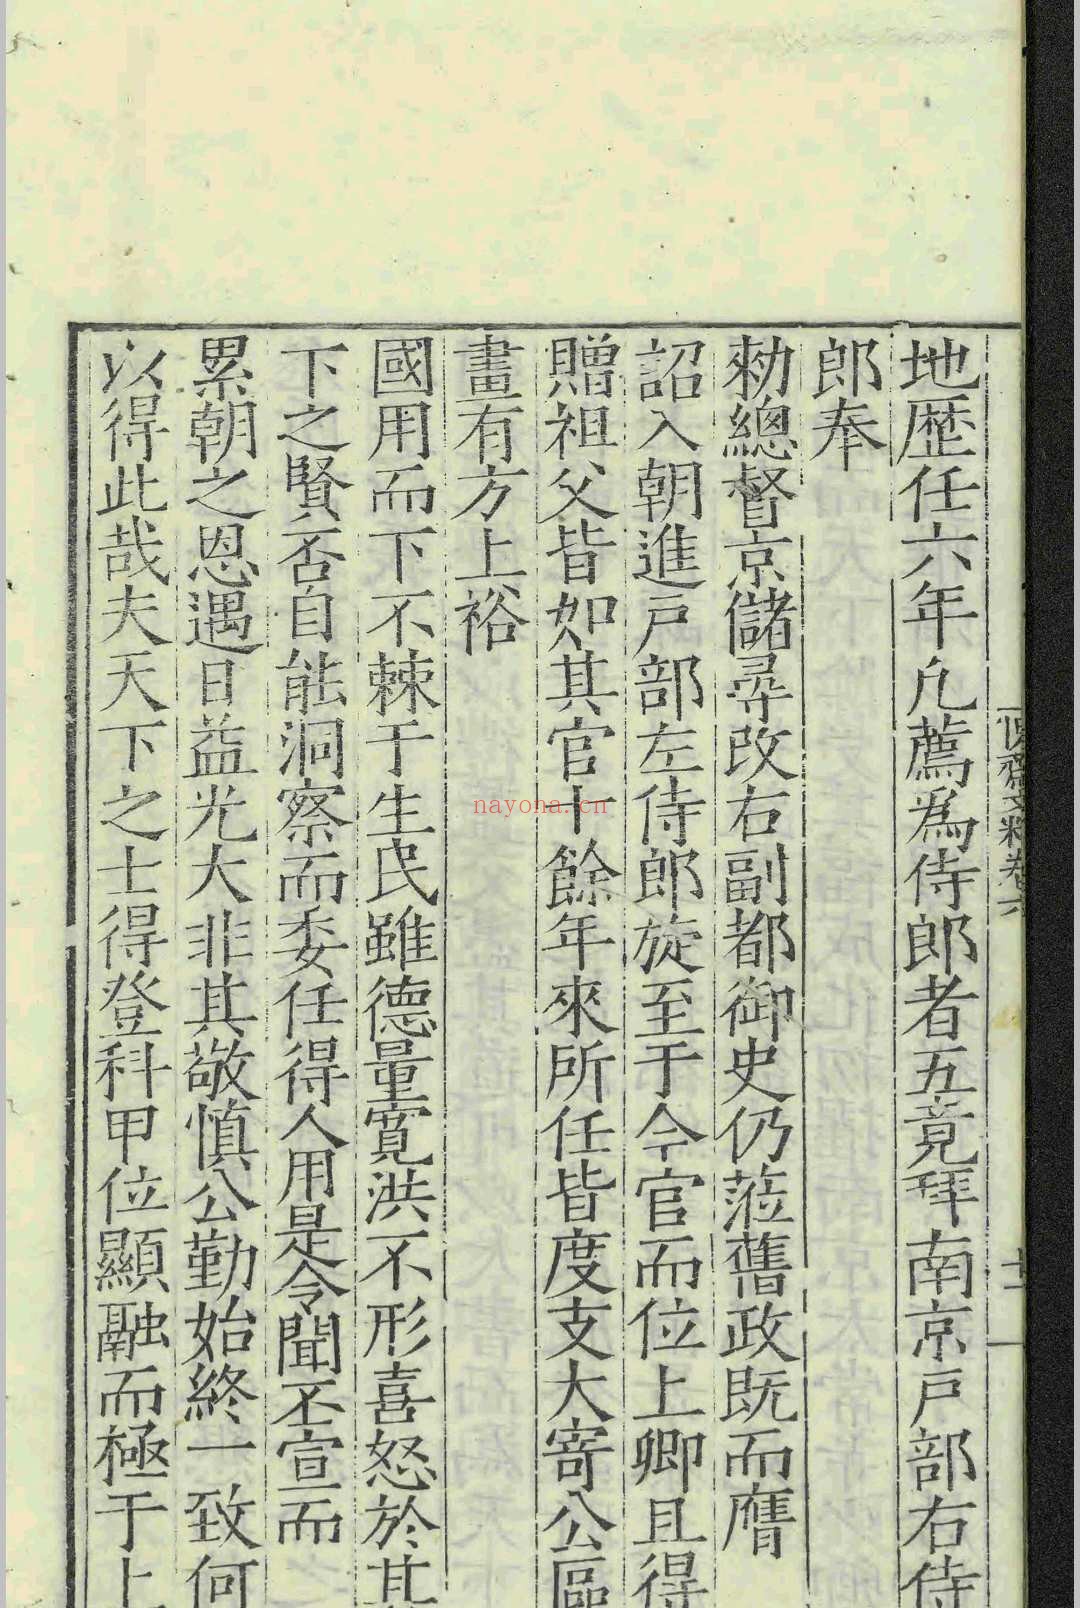 文粹卷六
十一
地歷任六年凢薦為侍郎者五竟拜南京戸部右侍
郎奉
勑總督京儲尋改右副都御史仍蒞舊政既而膺
詔入朝進戸部左侍郎旋至于今官而位上卿且得
贈祖父皆如其官十餘年來所任皆度支大寄公區
畫有方上裕
國用而下不棘于生民雖德量寛洪不形喜怒於其
下之賢否自能洞察而委任得人用是令聞丕宣而
累朝之恩遇日益光大非其敬慎公勤始終一致何
以得此哉夫天下之士得登科甲位顯融而極于上
nayona.cn